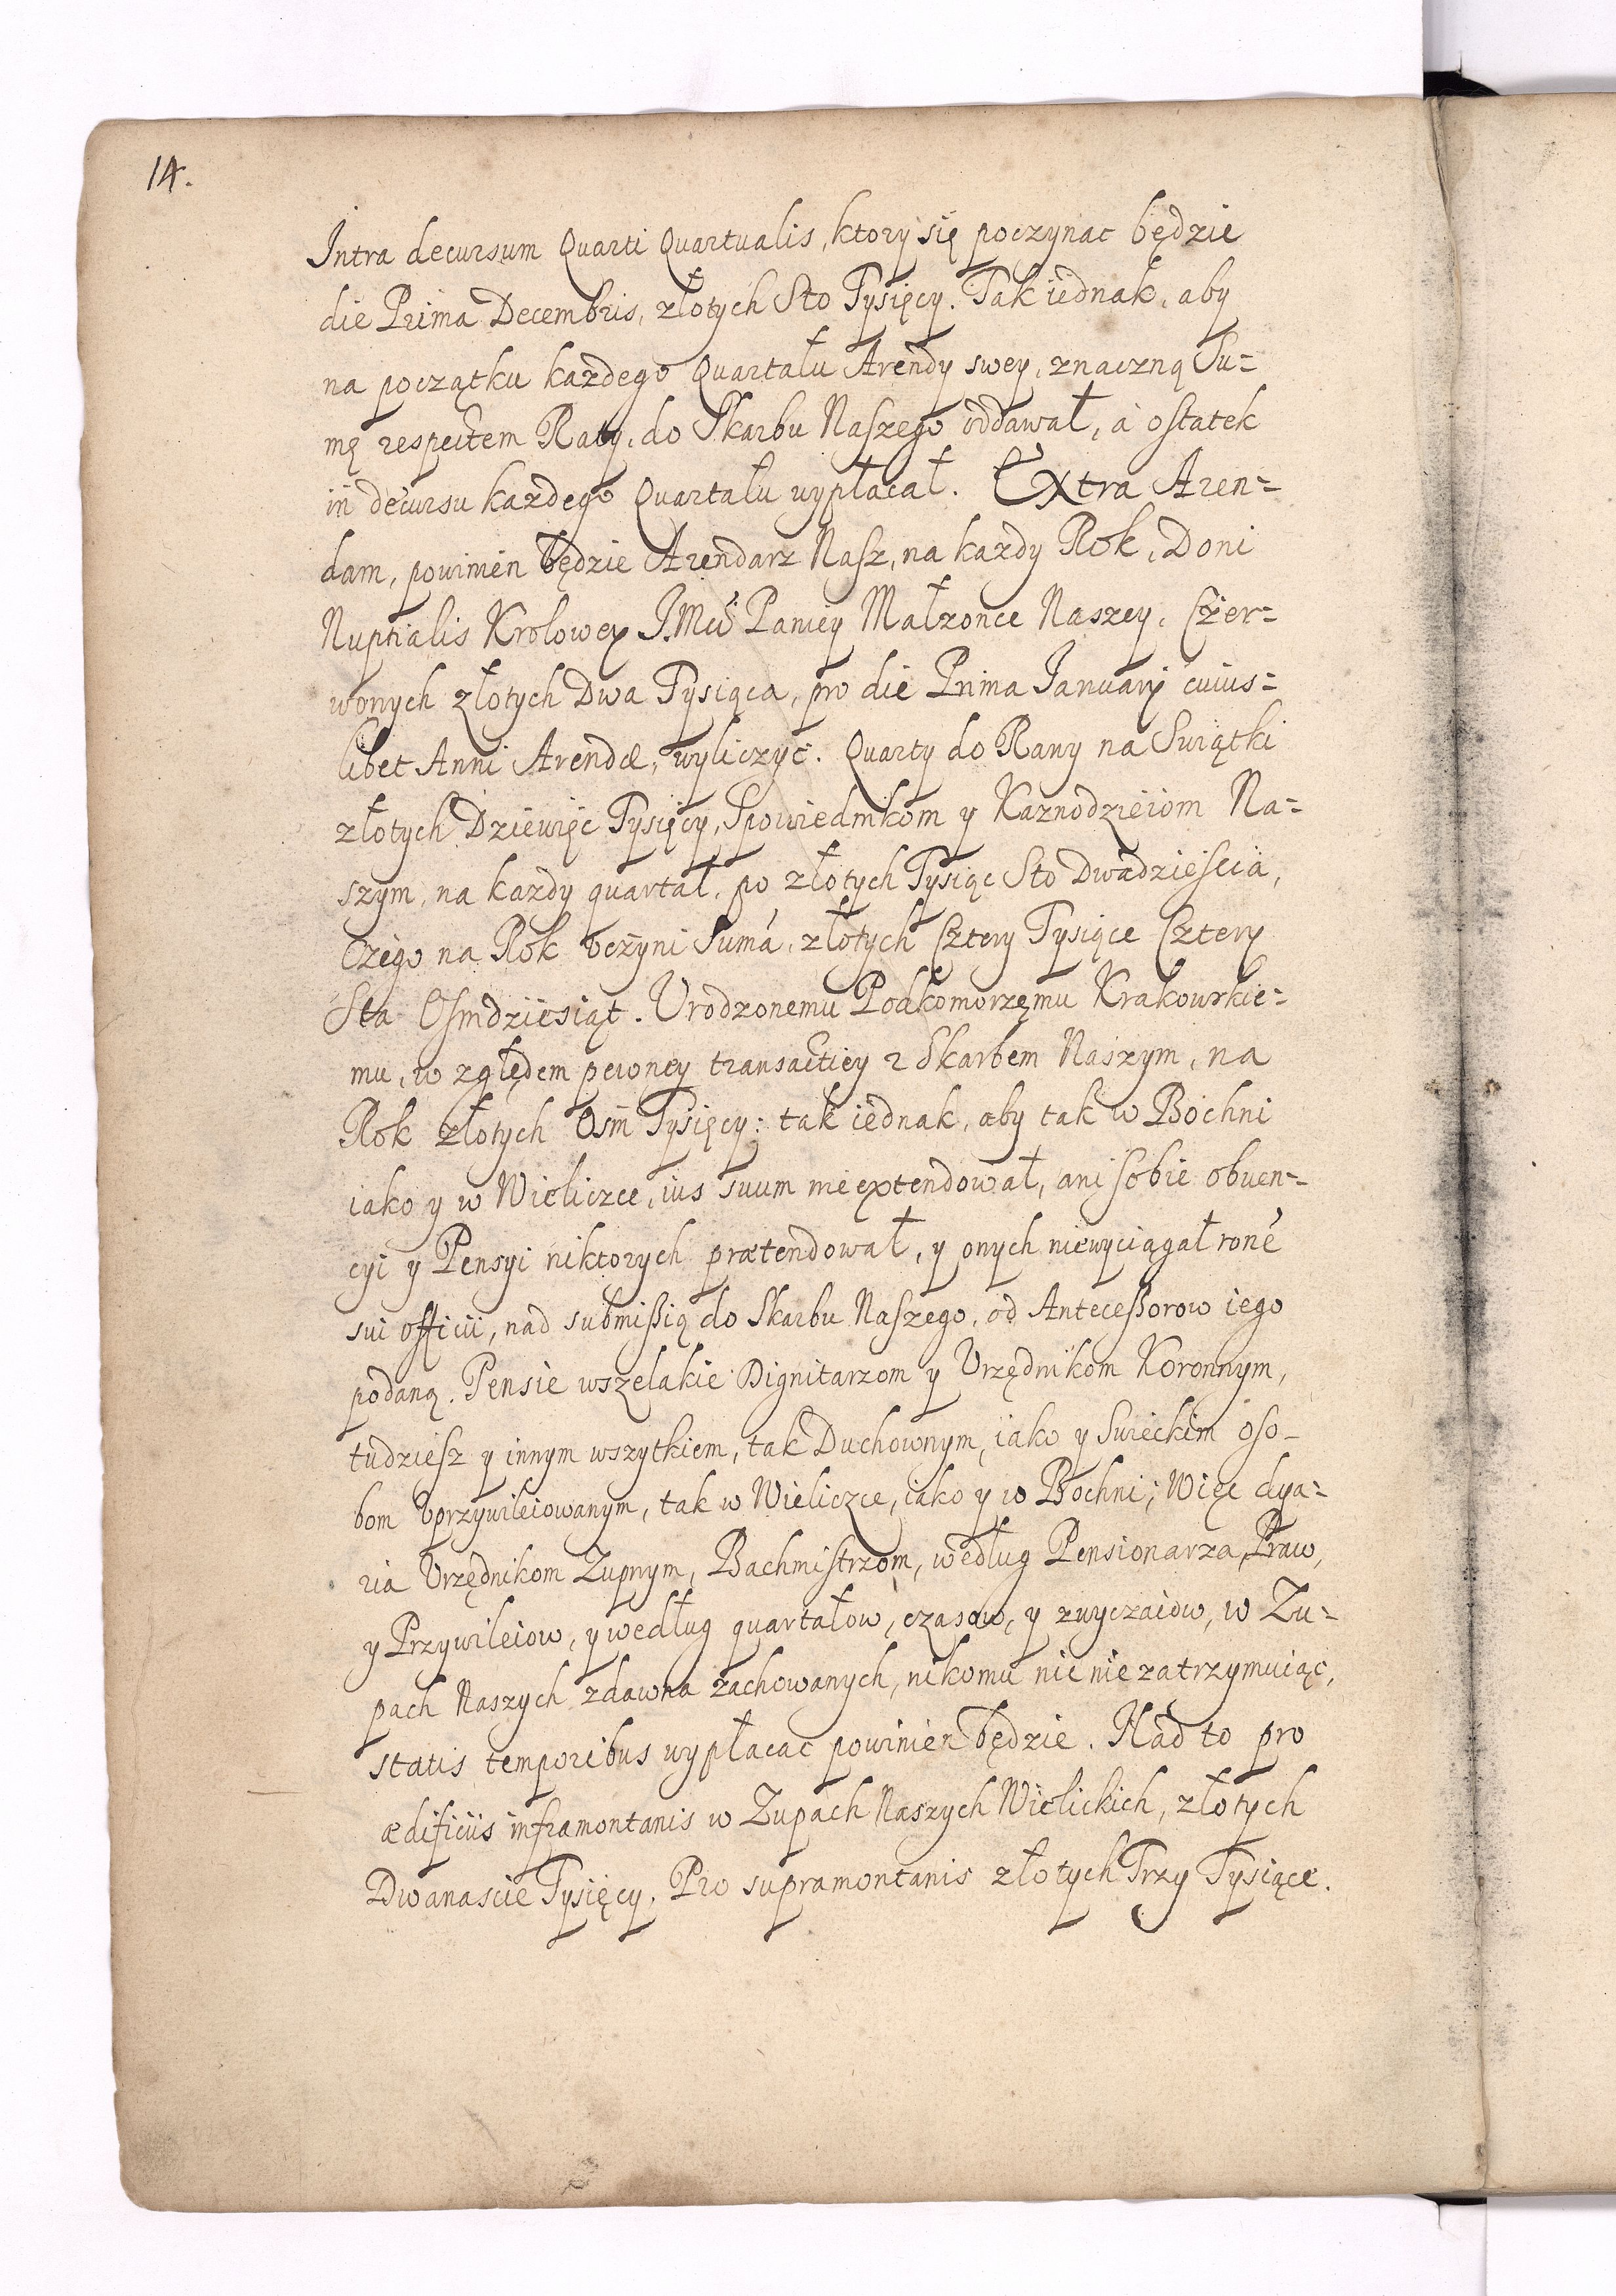 14.
Intra decursum Quarti Quartualis, ktory się poczynac będzie
die Prima Decembris, złotych Sto Tysięcy. Tak iednak, aby
na początku każdego Quartału Arendy swey, znaczną Su=
mę respectem Raty, do Skarbu Naszego oddawał, à ostatek
in decursu każdego Quartału wypłacał. Extra Aren=
dam, powinien będzie Arendarz Nasz, na każdy Rok, Doni
Nuptialis Krolowey J.Mći Paniey Małżonce Naszey, Czer=
wonych złotych Dwa Tysiąca, pro die Prima Januarij cuius=
libet Anni Arendæ, wyliczyć. Quarty do Rawy na Swiątki
złotych Dziewięć Tysięcy, Spowiednikom y Kaznodzieiom Na=
szym, na każdy quartał, po złotych Tysiąc Sto Dwadzieścia,
Czego na Rok vczyni Suma, złotych Cztery Tysiące Cztery
Sta Osmdziesiąt. Vrodzonemu Podkomorzęmu Krakowskie=
mu, w zględem pewney transactiey z Skarbem Naszym, na
Rok złotych Osm Tysięcy: tak iednak, aby tak w Bochni
iako y w Wieliczce, ius suum nie extendował, ani sobie obuen=
cyi y Pensyi niktorych prætendował, y onych niewyciągał rone
sui officii, nad submissią do Skarbu Naszego, od Antecessorow iego
podaną. Pensie wszelakie Dignitarzom y Vrzędnikom Koronnym,
tudziesz y innym wszytkiem, tak Duchownym, iako y Swieckim oso-
bom vprzywileiowanym, tak w Wieliczce, iako y w Bochni; Więc dya=
ria Vrzędnikom Zupnym, Bachmistrzom, według Pensionarza, Praw,
y Przywileiow, y według quartałow, czasow, y zwyczaiow, w Zu=
pach Naszych zdawna zachowanych, nikomu nic nie zatrzymuiąc,
statis temporibus wypłacac powinien będzie. Nad to pro
ædificiis inframontanis w Zupach Naszych Wielickich, złotych
Dwanascie Tysięcy. Pro supramontanis złotych Trzy Tysiące.